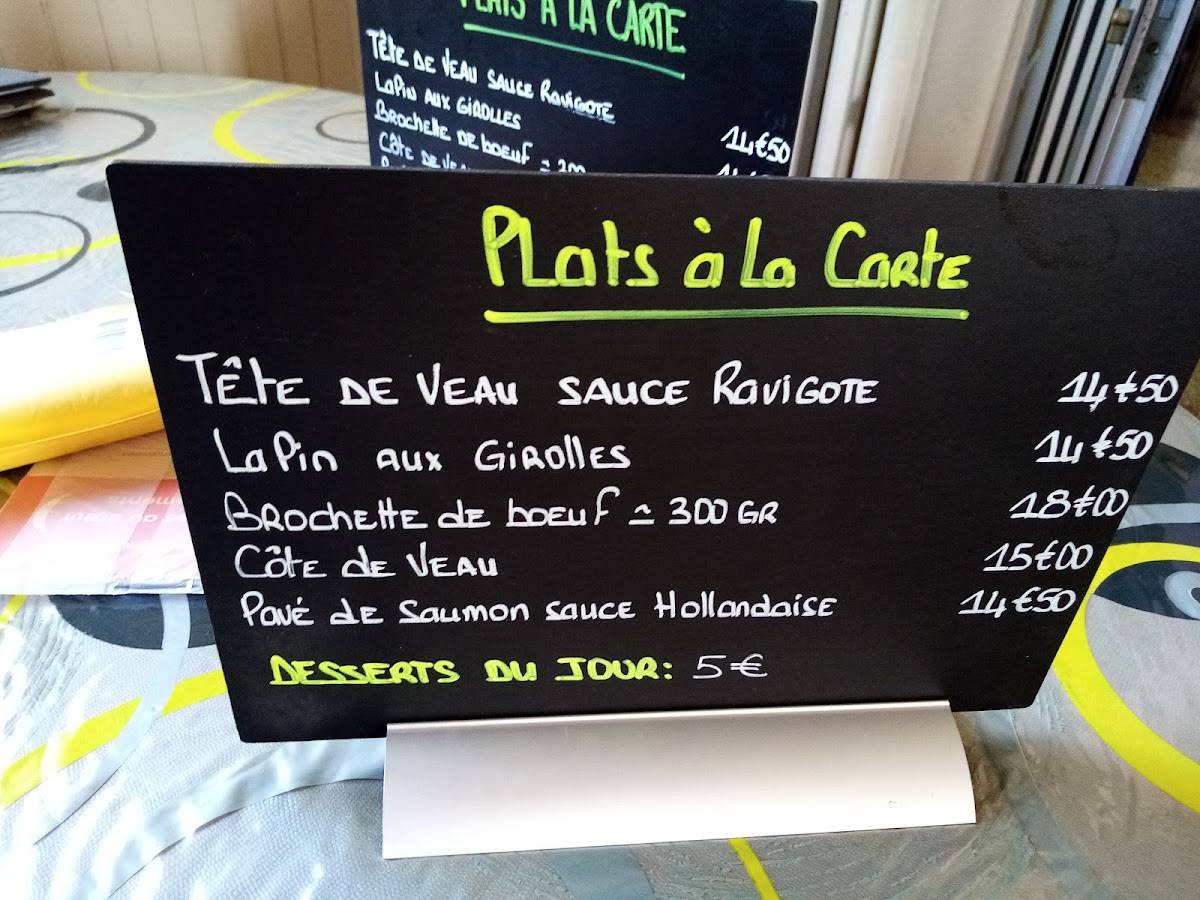 PLATS À LA CARTE
TÊTE DE VEAU SAUCE RAVIGOTE
LAPIN AUX GIROLLES 14€50
BROCHETTE DE BOEUF ≃ 300
CÔTE DE VEAU
PLats à La CaRtE
TÊtE DE VEAU SAUCE RaviGOTE 14€50
LaPin aux GiROllEs 14€50
BROchEttE dE boEuf ≃ 300 GR 18€00
CôtE dE VEau 15€00
Pavé dE Saumon sauce HollandaisE 14€50
DESSERTS DU JOUR: 5€